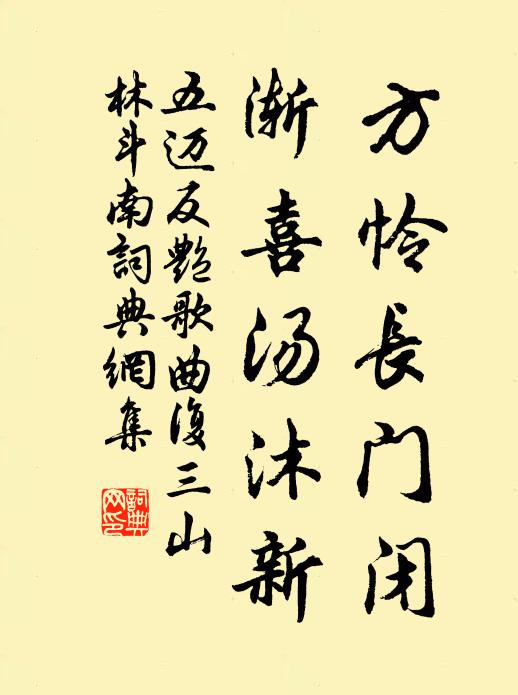 方怜長门闭
渐喜汤沐新
五迈反艷歌曲復三山
林斗南詞典網集
詞典网印